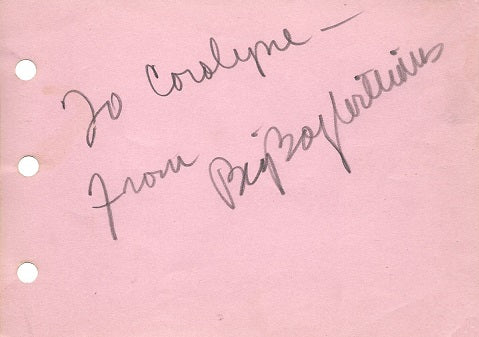 To Carolyne —
From Big Boy Williams